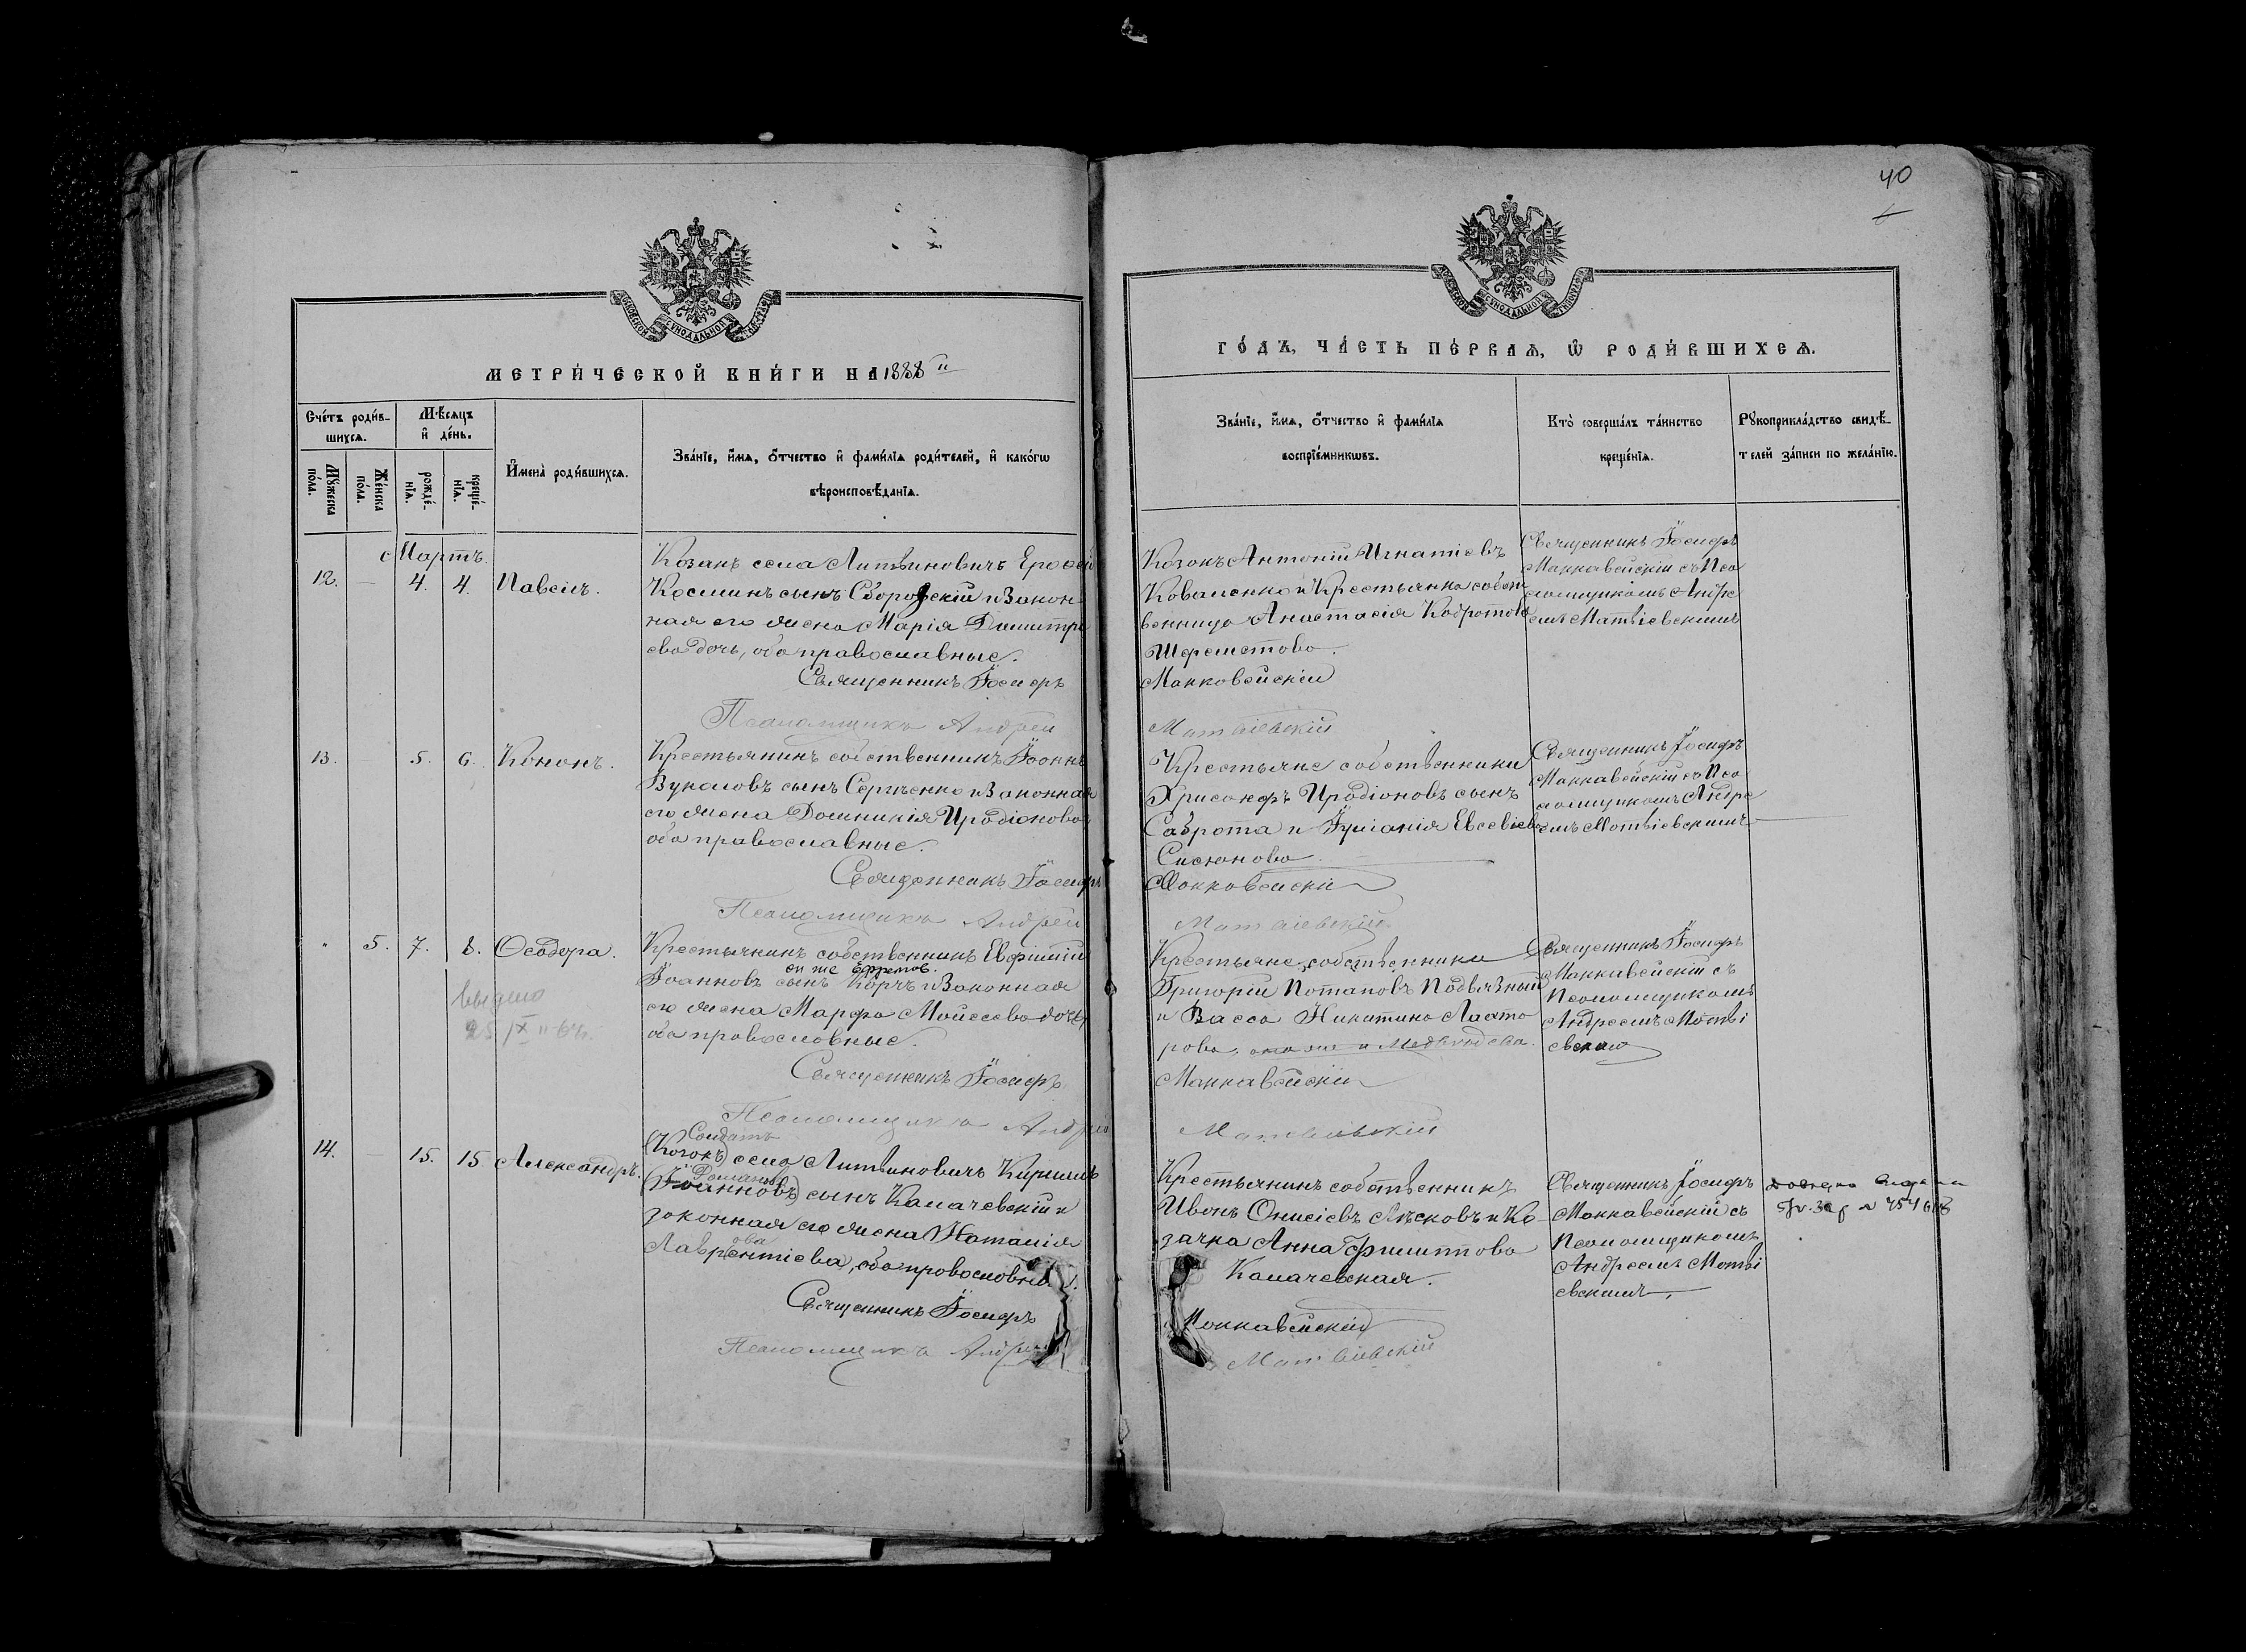 40
МЕТРИ́ЧЕСКОЙ КНИ́ГИ НА 1888
ГО́ДЪ, ЧА́СТЬ ПЕ́РВАѦ, Ѡ҆ РОДИ́ВШИХСѦ.
Сче́тъ роди́в-
шихсѧ.
Мꙋ́жеска по́ла.
Же́нска по́ла.
Мѣ́сѧцъ
и҆ де́нь.
рожде́-
нїѧ.
креще́-
нїѧ.
И҆мена̀ роди́вшихсѧ.
Зва́нїе, и҆́мѧ, ѻ҆́тчество и҆ фами́лїѧ роди́телей, и҆ како́гѡ
вѣроисповѣ́данїѧ.
Зва́нїе, и҆́мѧ, ѻ҆́тчество и҆ фами́лїѧ
воспрїе́мникѡвъ.
Кто̀ соверша́лъ та́инство
креще́нїѧ.
Рꙋкоприкла́дство свидѣ́-
телей за́писи по жела́нїю.
Мартъ
12. — 4. 4. Павелъ.
Козакъ села Литвиновичъ Ерофей
Косминъ сынъ Сборовскій и закон-
ная его жена Марія Димитрі
ева дочь, оба православные.
Священникъ Іосифъ
Псаломщикъ Андрей
Козакъ Антоній Игнатіевъ
Коваленко и Крестьянка собст
венница Анастасія Кодратова
Шереметова.
Маккавейскій
Матвіевскій
Священникъ Іосифъ
Маккавейскій съ Пса
ломщикомъ Андре
емъ Матвіевскимъ
13. 5. 6. Кононъ.
Крестьянинъ собственникъ Іоаннъ
Вуколовъ сынъ Сергѣенко и законная
его жена Домникія Иродіонова
оба православные.
Священникъ Іосифъ
Псаломщикъ Андрей
Крестьяне собственники
Хрисанфъ Иродіоновъ сынъ
Саврота и Іуліанія Евсевіева
Сисюнова.
Маккавейскій
Матвіевскій
Священникъ Іосифъ
Маккавейскій съ Пса
ломщикомъ Андре
емъ Матвіевскимъ
" 5. 7. 8. Ѳеодора.
выдано
Крестьянинъ собственникъ Евфимій
он же Ефремов.
Іоанновъ сынъ Корчъ и законная
его жена Марфа Мойсеева дочь,
оба православные.
Священникъ Іосифъ
Псаломщикъ Андрей
Крестьяне собственники
Григорій Потаповъ Подвязный
и Васса Никитина Ласто
рова, она же и Медвѣдева.
Маккавейскій
Матвіевскій
Священникъ Іосифъ
Маккавейскій съ
Псаломщикомъ
Андреемъ Матві
евским
14. — 15. 15 Александръ.
Солдатъ
(Козакъ) села Литвиновичъ Кирилъ
Романов
(Іоанновъ) сынъ Калачевскій и
законная его жена Наталія
ова
Лаврентіева, оба православны
Священникъ Іосифъ
Псаломщикъ Андрей
Крестьянинъ собственникъ
Иванъ Онисіевъ Лѣсковъ и Ко-
зачка Анна Филиппова
Калачевская.
Маккавейскій
Матвіевскій
Священникъ Іосифъ
Маккавейскій съ
Псаломщикомъ
Андреемъ Матві
евскимъ.